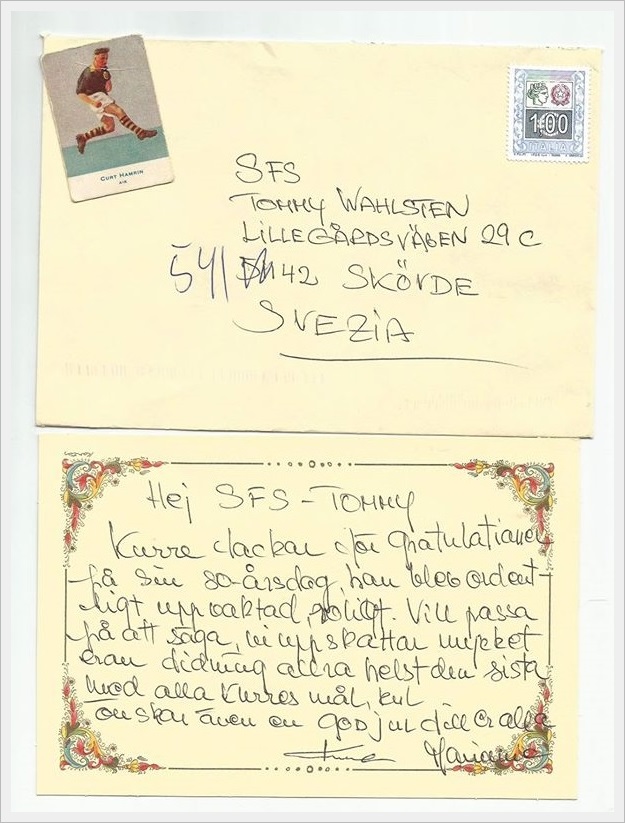 CURT HAMRIN
AIK
1.00
ITALIA
SFS
TOMMY WAHLSTEN
LILLEGÅRDSVÄGEN 29 C
541 42 SKÖVDE
SVEZIA
Hej SFS - TOMMY
Kurre tackar för gratulationer
på sin 80-årsdag, han blev ordent-
ligt uppvaktad, roligt. Vill passa
på att säga, vi uppskattar mycket
eran tidning allra helst den sista
med alla Kurres mål, kul
önskar även en god jul till er alla
Kurre Marianne